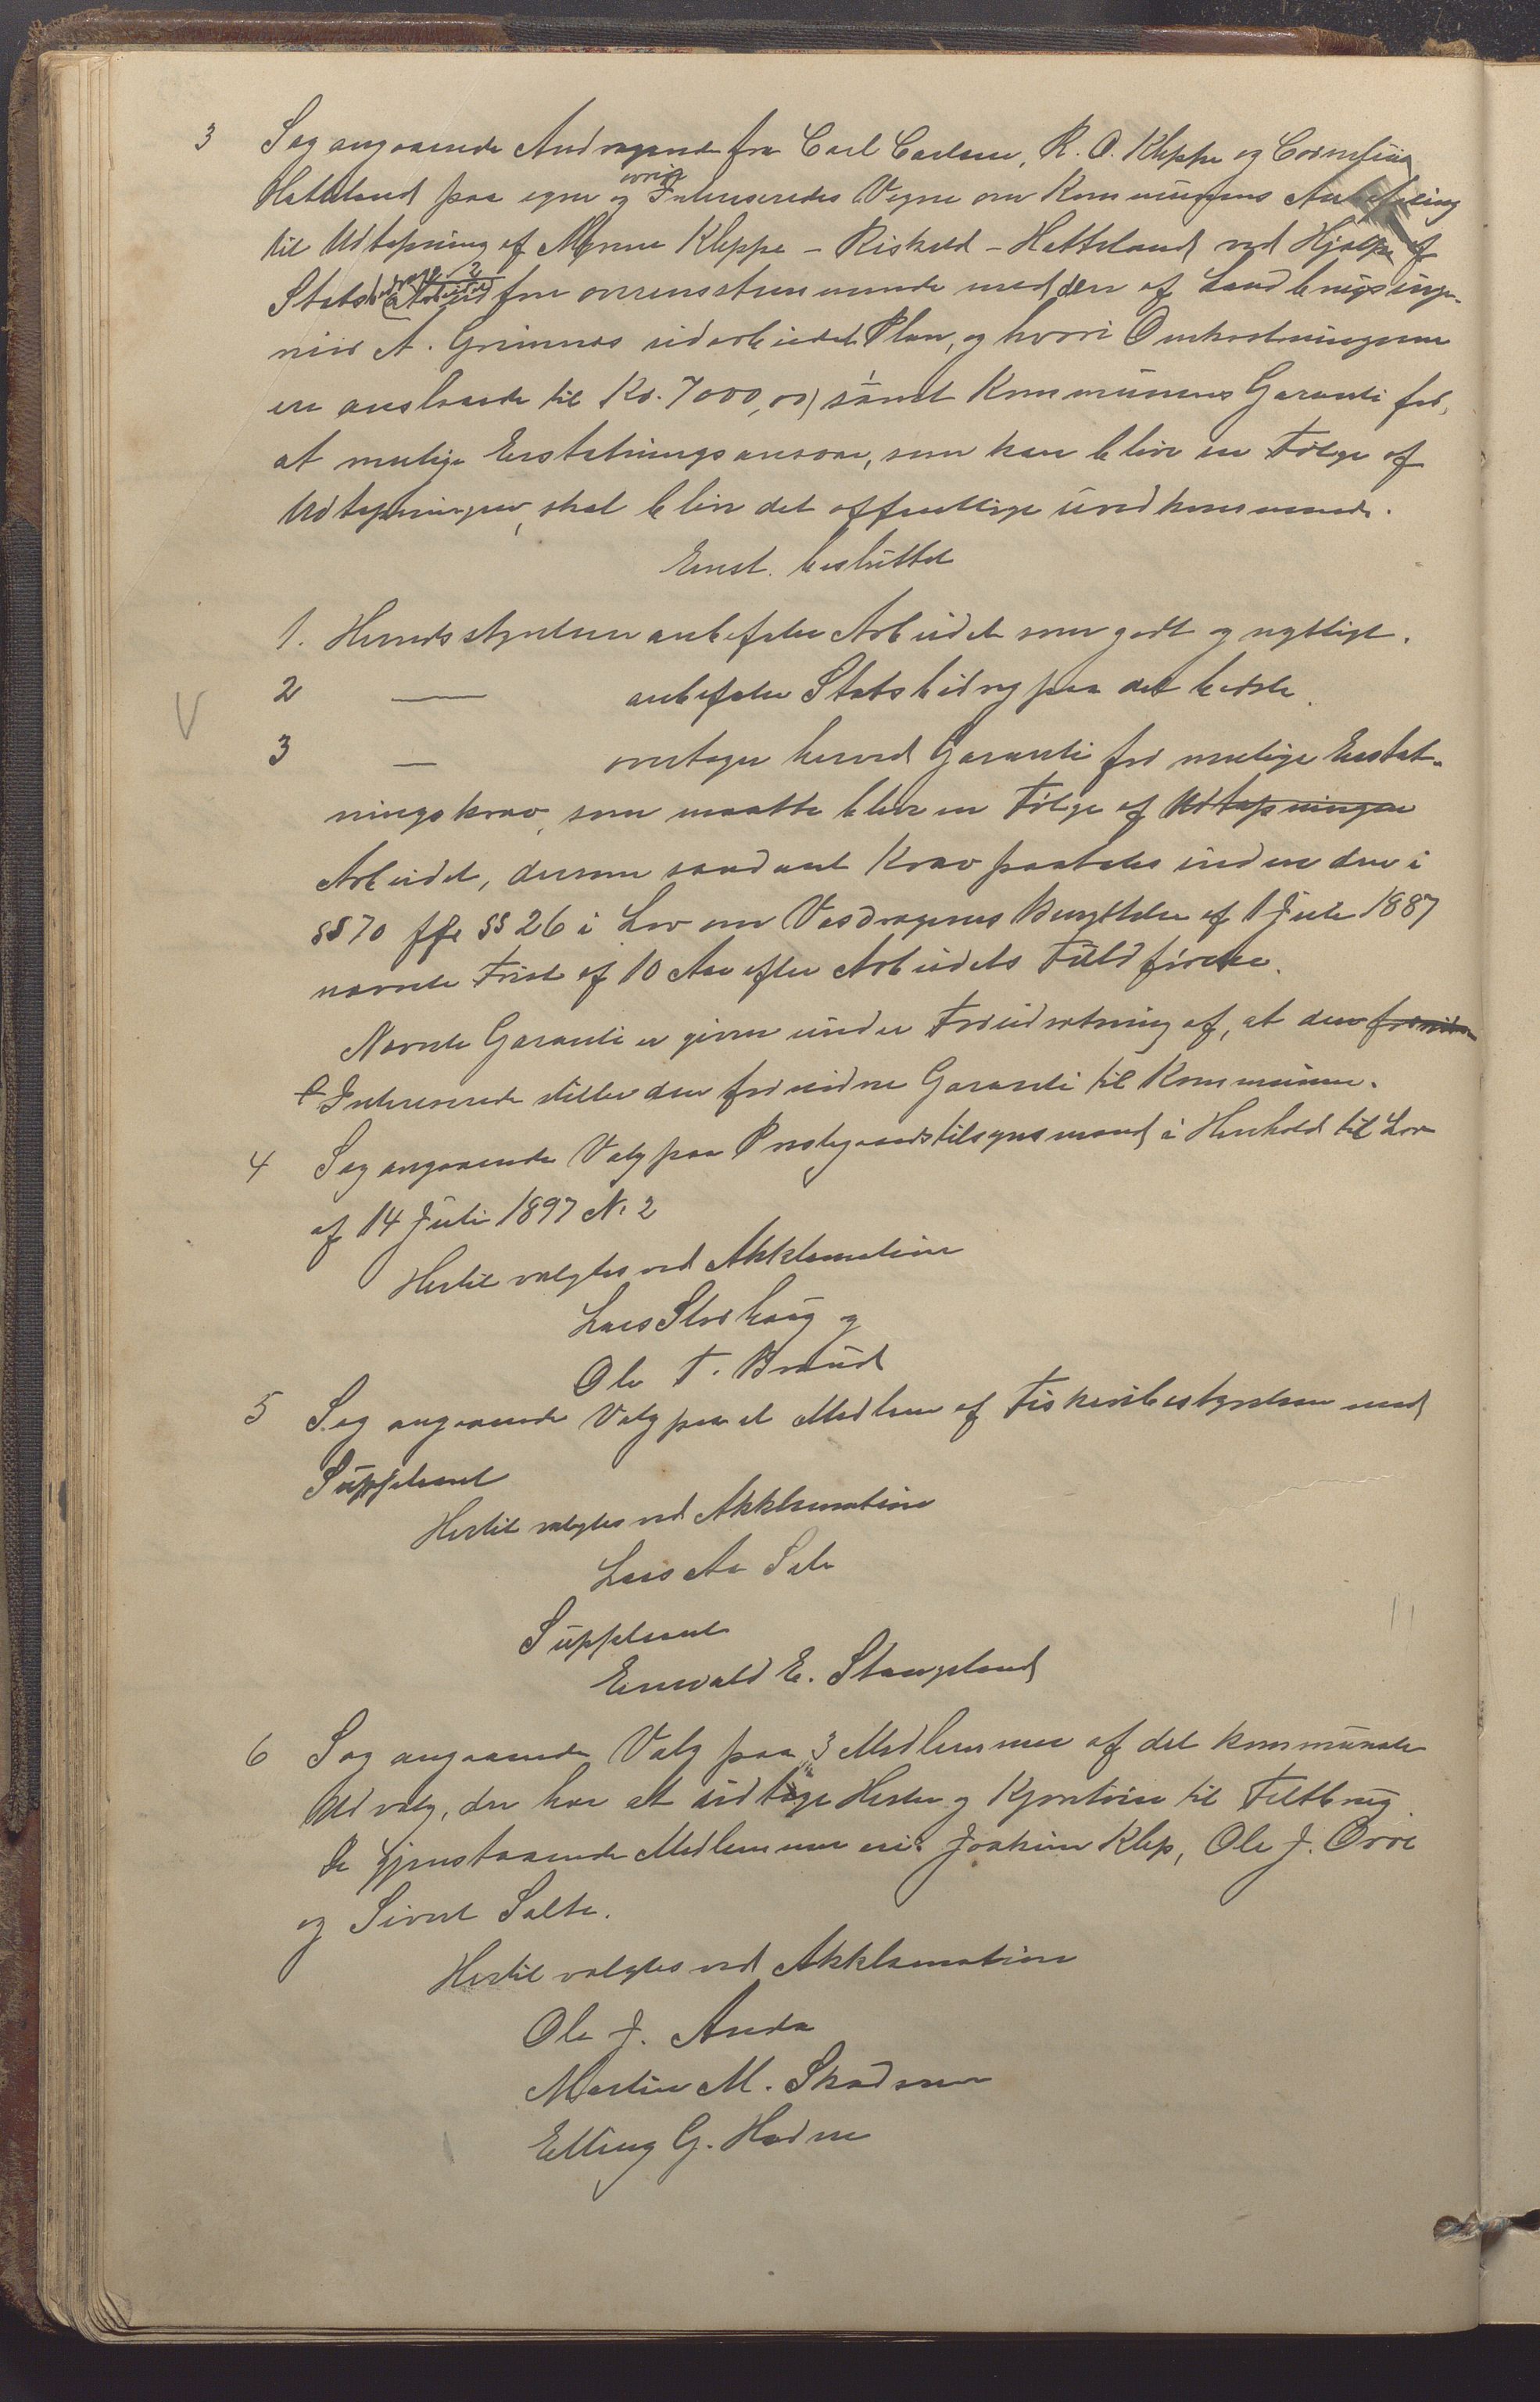 3 Sag angaaende Andragende fra Carl Carlsen, R. O. Kleppe og Cornelius
Hatteland paa egne og øvrige Interesseredes Vegne om Kommunens Anbefaling
til Udtapning af Myrene Kleppe - Riskeld - Hatteland ved Hjælp af
Statsbidrag 2 (Arbeidet) for overensstemmende med den af Landbrugsinge-
niør A. Grimnes udarbeidet Plan, og hvori Omkostningerne
ere anslaaede til Kr. 7000,00) samt Kommunens Garanti for,
at mulige Erstatningsansvar, som kan blive en Følge af
Udtapningen, skal blive det offentlige uvedkommende.
Enst. besluttet
1. Herredsstyrelsen anbefaler Arbeidet som godt og nyttigt.
2 — anbefaler Statsbidrag paa det bedste.
3 — overtager herved Garanti for mulige Erstat-
ningskrav, som maatte blive en Følge af Udtapningen
Arbeidet, dersom saadant Krav paatales inden den i
§§ 70 jfr §§ 26 i Lov om Vasdragenes Benyttelse af 1 Juli 1887
nævnte Frist af 10 Aar efter Arbeidets Fuldførelse.
Nævnte Garanti er given under Forudsætning af, at den
Interesserede stiller den fornødne Garanti til Kommunen.
4 Sag angaaende Valg paa Prestegaardstilsynsmænd i Henhold til Lov
af 14 Juli 1897 N. 2
Hertil valgtes ved Akklamation
Lars Storhaug og
Ole T. Braud
5 Sag angaaende Valg paa et Medlem af Fiskeribestyrelsen med
Suppleant
Hertil valgtes ved Akklamation
Lars Aa Sele
Suppleant
Enevald E. Stangeland
6 Sag angaaende Valg paa 3 Medlemmer af det kommunale
Udvalg, der har at udtage Heste og Kjøretøier til Feltbrug.
De gjenstaaende Medlemmer er: Joakim Klep, Ole J. Orre
og Sivert Salte.
Hertil valgtes ved Akklamation
Ole J. Anda
Martin M. Skadsem
Elling G. Hodne